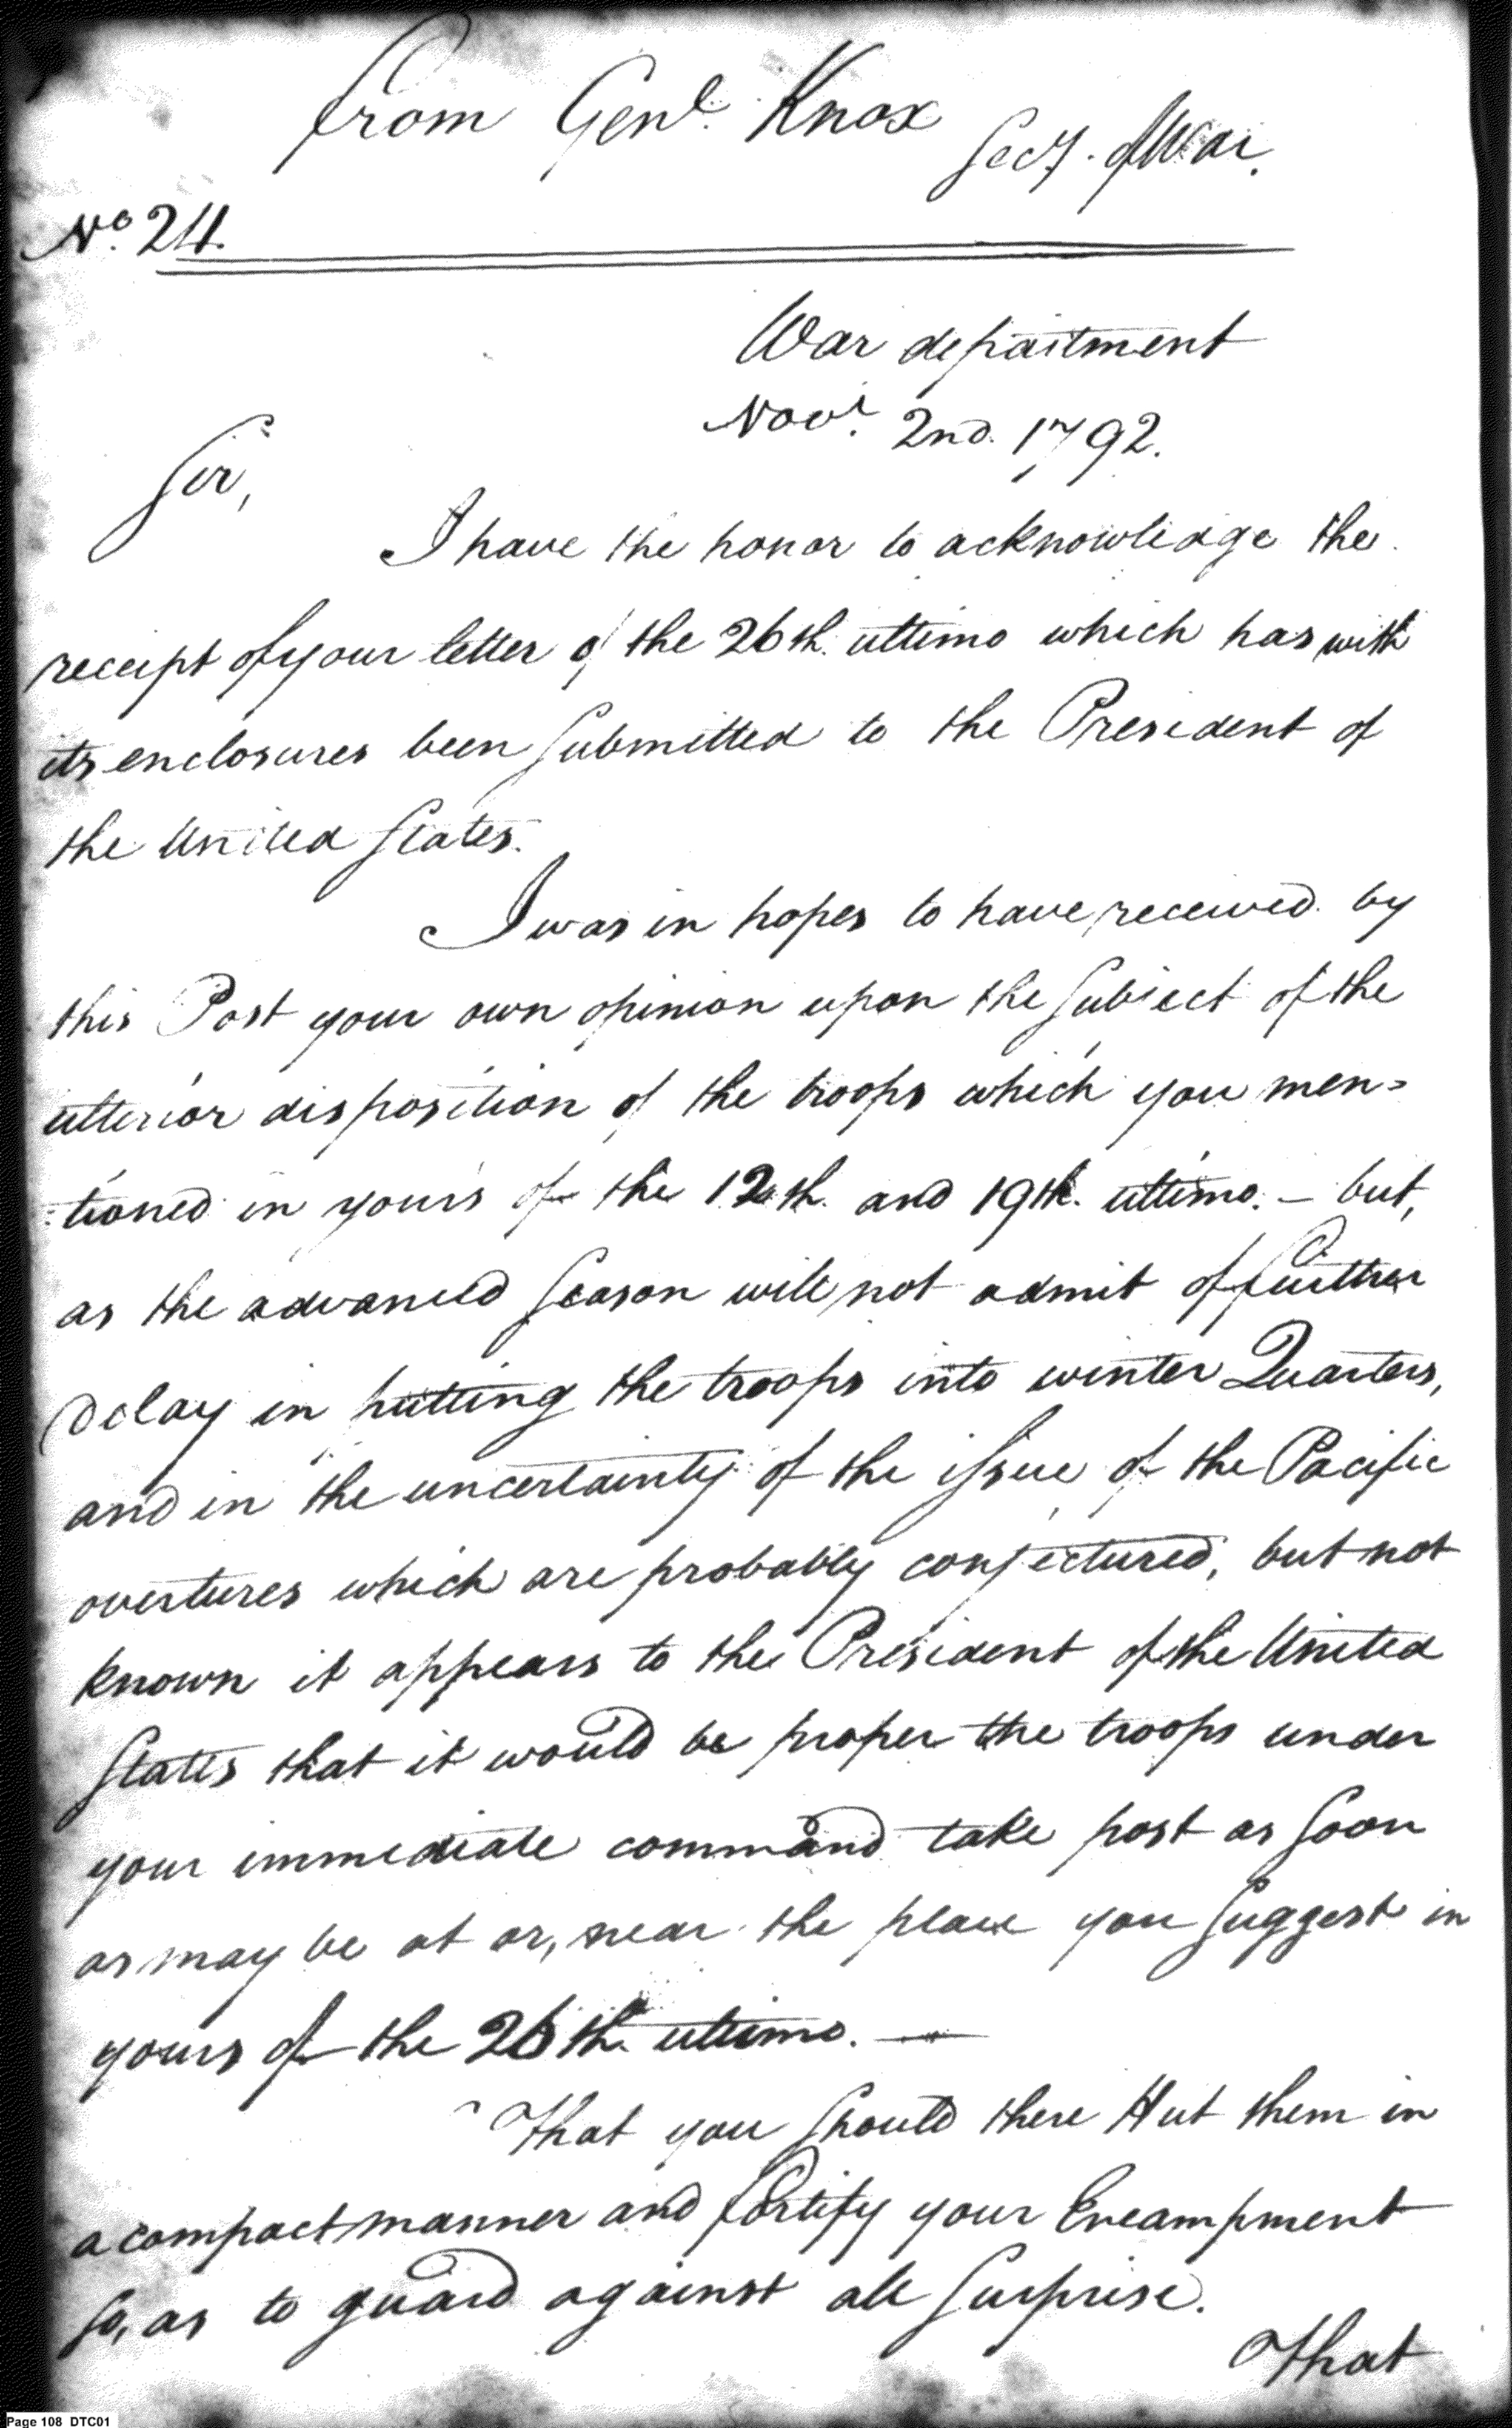 from Genl. Knox Secy. of War.
No. 24.
War department
Novr. 2nd. 1792.
Sir,
I have the honor to acknowledge the
receipt of your letter of the 26th. ultimo which has with
its enclosures been Submitted to the President of
the United States.
I was in hopes to have received by
this Post your own opinion upon the Subject of the
ulterior disposition of the troops which you men=
=tioned in yours of the 12th. and 19th. ultimo. - but,
as the advanced Season will not admit of further
delay in putting the troops into winter Quarters,
and in the uncertainty of the issue of the Pacific
overtures which are probably conjectured, but not
known it appears to the President of the United
States that it would be proper the troops under
your immediate command take post as Soon
as may be at or, near the place you Suggest in
yours of the 26th. ultimo. —
That you Should there Hut them in
a compact manner and fortify your Encampment
So, as to guard against all Surprise.
That
Page 108 DTC01